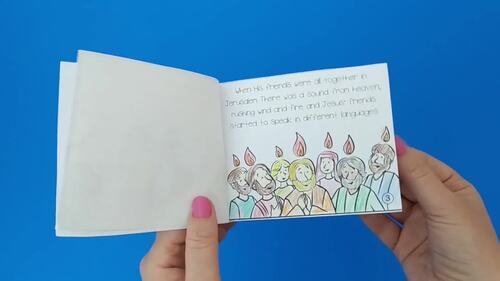 When His friends were all together in
Jerusalem. There was a sound from heaven,
rushing wind and fire and Jesus' friends
started to speak in different languages.
3